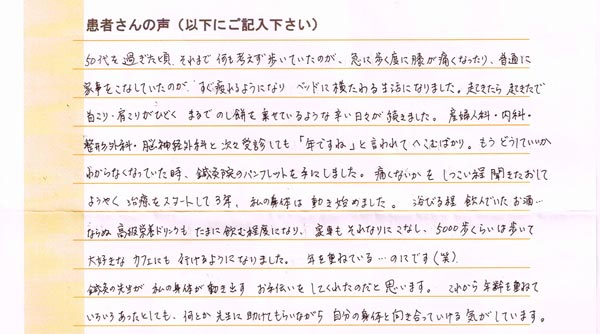 患者さんの声（以下にご記入下さい）
50代を過ぎた頃、それまで何も考えず歩いていたのが、急に歩く度に膝が痛くなったり、普通に
家事をこなしていたのが、すぐ疲れるようになり ベッドに横たわる生活になりました。起きたら起きたで
首こり・肩こりがひどく まるでのし餅を乗せているような辛い日々が続きました。産婦人科・内科・
整形外科・脳神経外科と次々受診しても「年ですね」と言われてへこむばかり。もうどうしていいか
わからなくなっていた時、鍼灸院のパンフレットを手にしました。痛くないかをしつこい程聞きたおして
ようやく治療をスタートして3年、私の身体は動き始めました。浴びる程飲んでいたお酒…
ならぬ高級栄養ドリンクもたまに飲む程度になり、家事もそれなりにこなし、5000歩くらいは歩いて
大好きなカフェにも行けるようになりました。年を重ねている…のにです（笑）
鍼灸の先生が私の身体が動き出すお手伝いをしてくれたのだと思います。これから年齢を重ねて
いろいろあったとしても、何とか先生に助けてもらいながら自分の身体と向き合っていける気がしています。